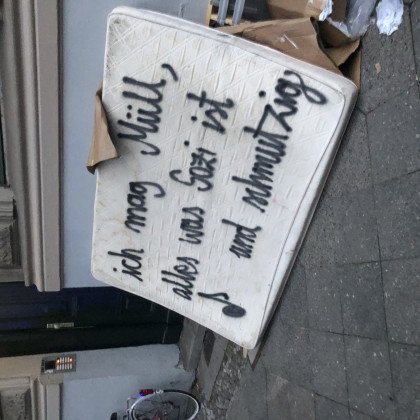 ich mag Müll,
alles was Sozi ist
und schmutzig